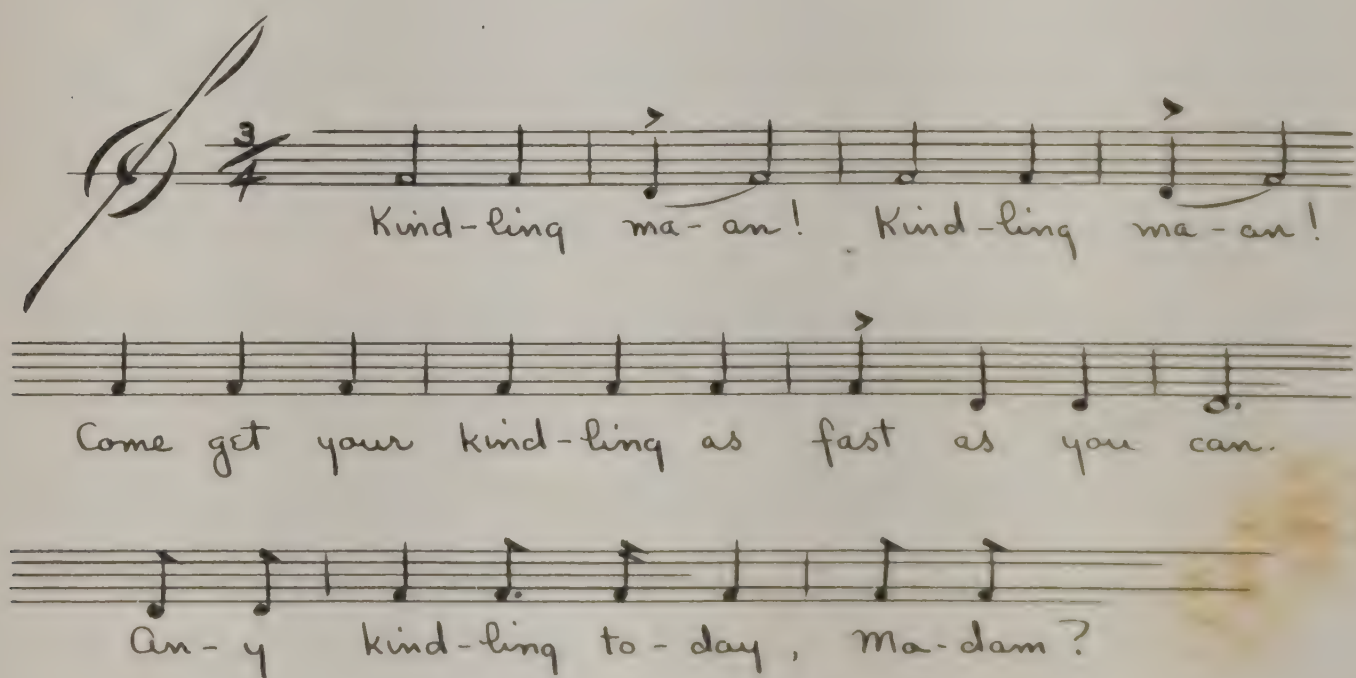 3
4
Kind-ling ma-an! Kind-ling ma-an!
Come get your kind-ling as fast as you can.
An-y kind-ling to-day, Ma-dam?